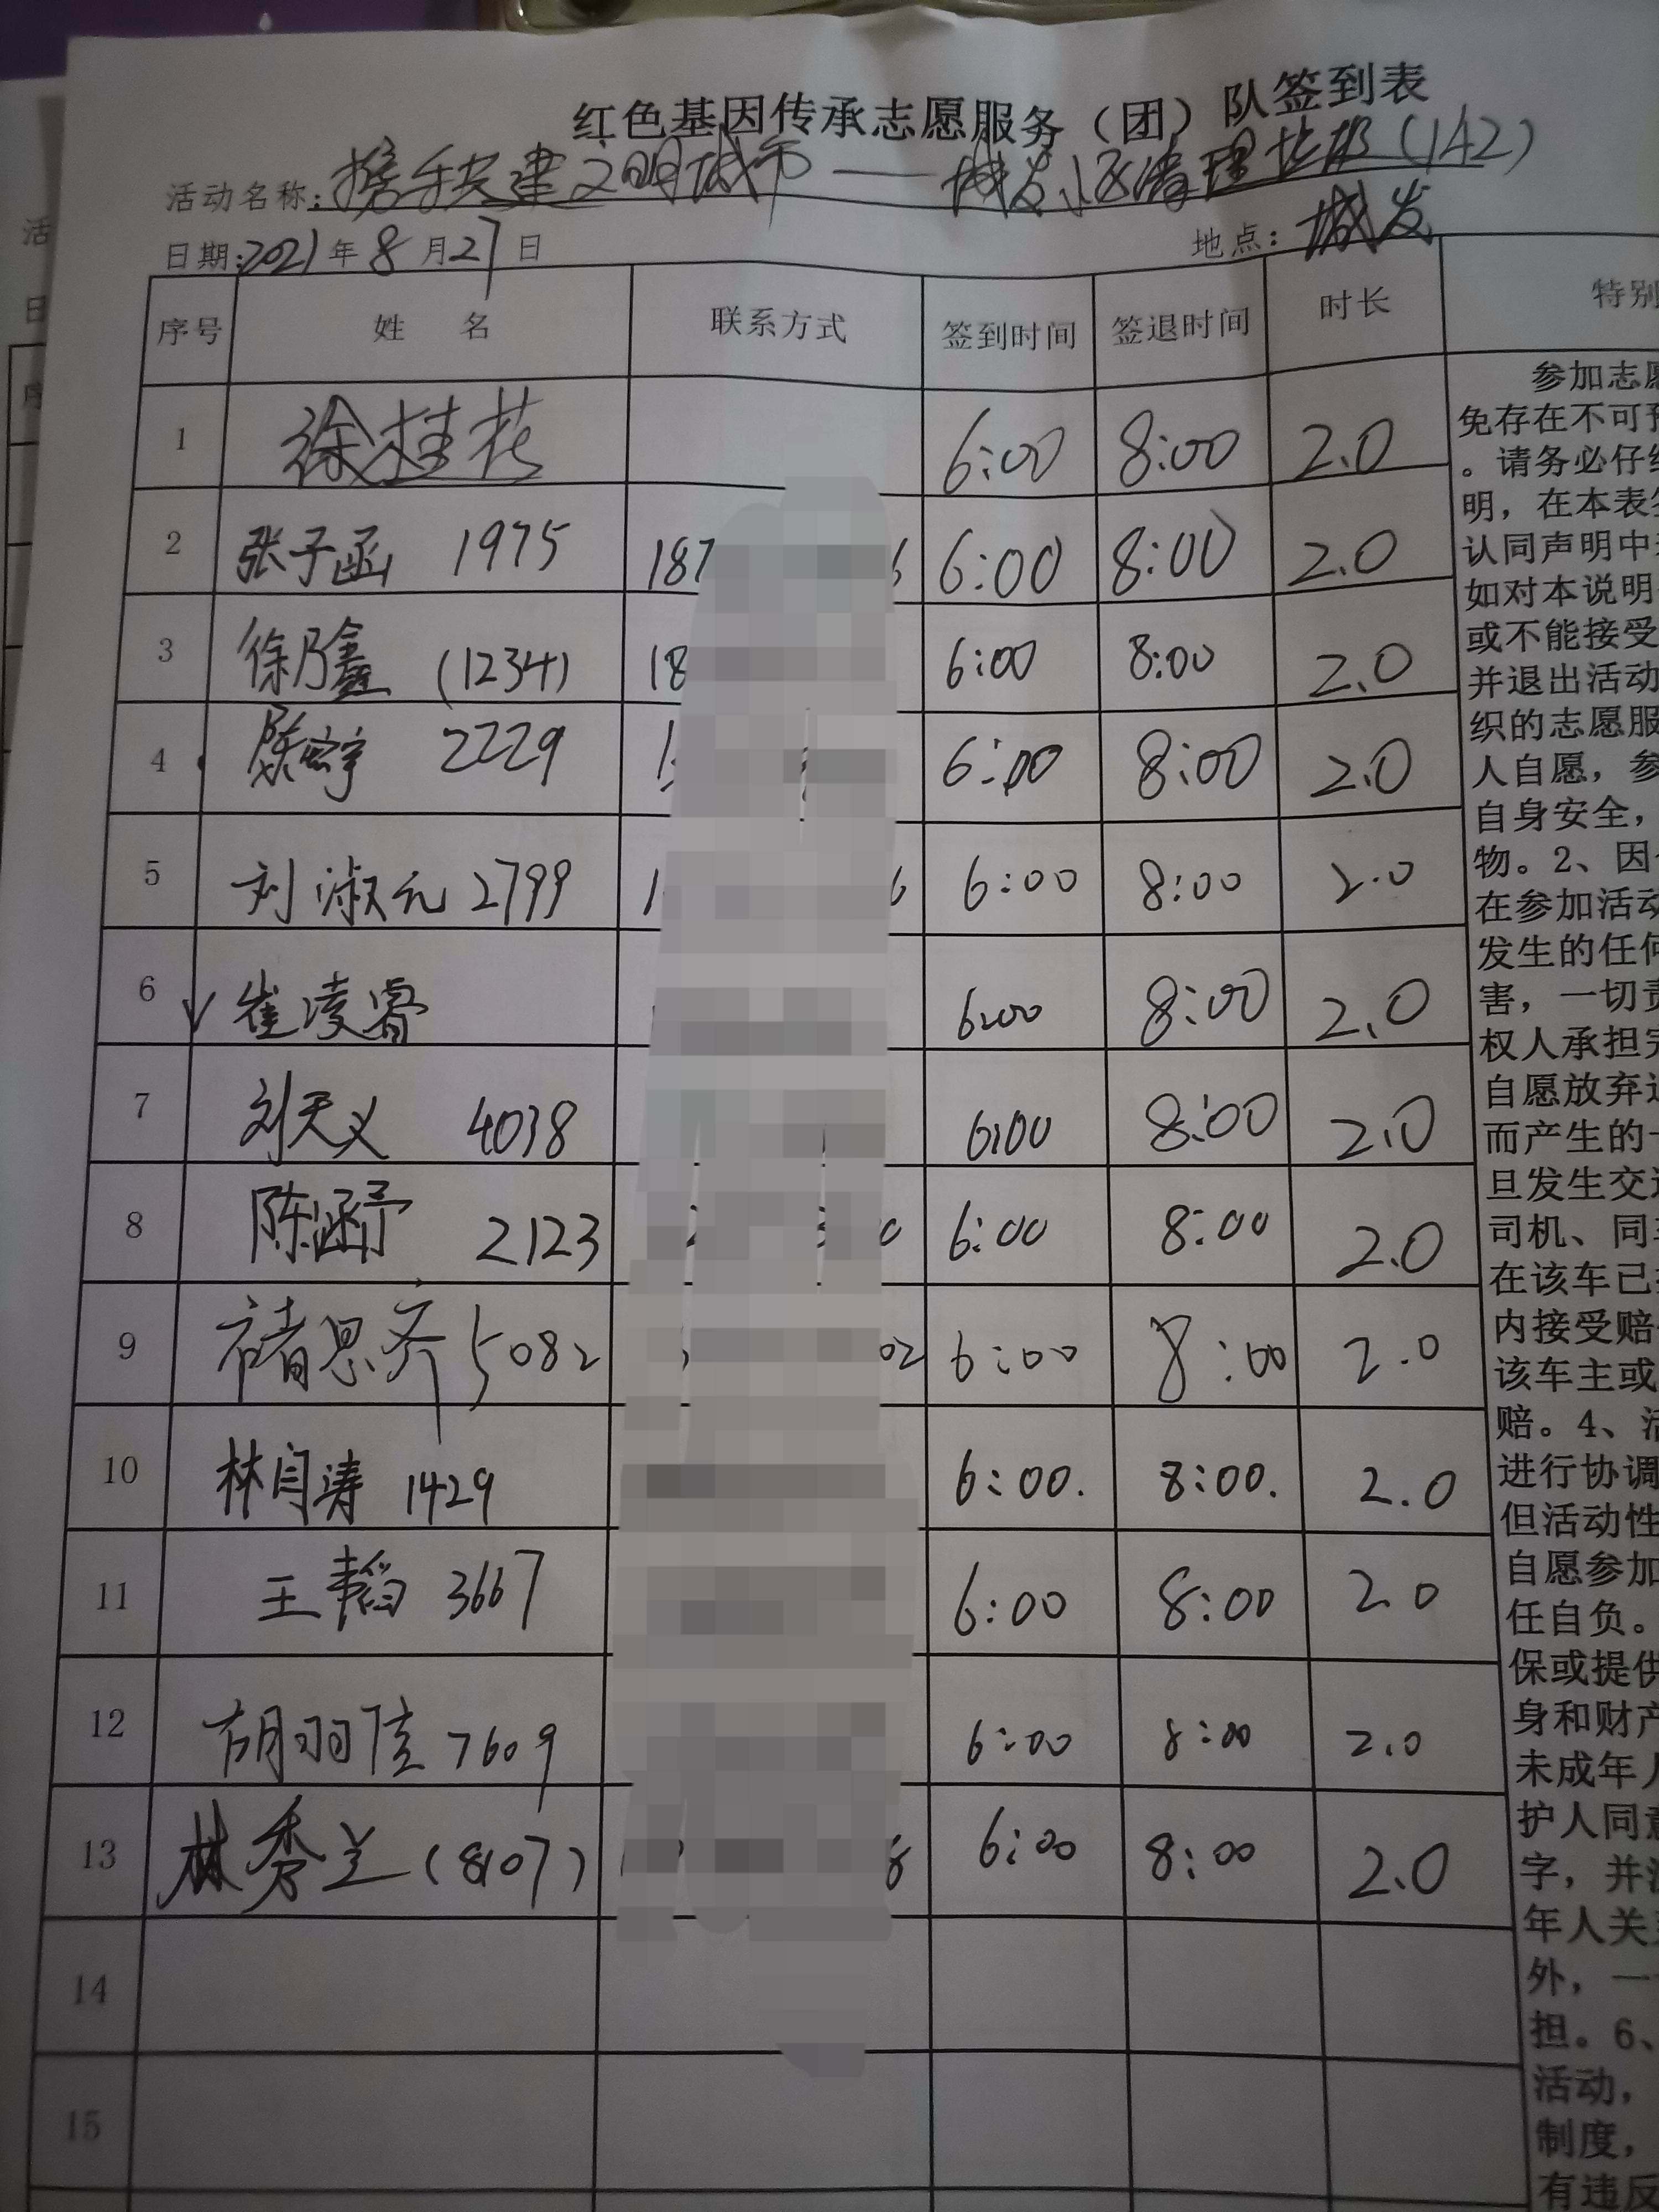 红色基因传承志愿服务（团）队签到表
活动名称：携手共建文明城市——城发小区清理垃圾(142)
日期：2021年8月27日 地点：城发
序号 姓名 联系方式 签到时间 签退时间 时长 特别
1 徐桂花 6:00 8:00 2.0
2 张子函 1975 187 6:00 8:00 2.0
3 徐乃鑫 (1234) 18 6:00 8:00 2.0
4 2229 6:00 8:00 2.0
5 刘淑元 2799 6:00 8:00 2.0
6 崔凌睿 6:00 8:00 2.0
7 刘天义 4038 6:00 8:00 2.0
8 陈涵予 2123 6:00 8:00 2.0
9 褚思齐 5082 02 6:00 8:00 2.0
10 林闫涛 1429 6:00. 8:00. 2.0
11 王韬 3667 6:00 8:00 2.0
12 胡羽佳 7609 6:00 8:00 2.0
13 林秀兰 (8107) 8 6:00 8:00 2.0
14
15
参加志愿
免存在不可预
。请务必仔细
明，在本表签
认同声明中
如对本说明
或不能接受
并退出活动
织的志愿服
人自愿，参
自身安全，
物。2、因
在参加活动
发生的任何
害，一切责
权人承担完
自愿放弃追
而产生的一
旦发生交通
司机、同车
在该车已
内接受赔
该车主或
赔。4、活
进行协调
但活动性
自愿参加
任自负。
保或提供
身和财产
未成年人
护人同意
字，并
年人关
外，一
担。6、
活动，
制度，
有违反